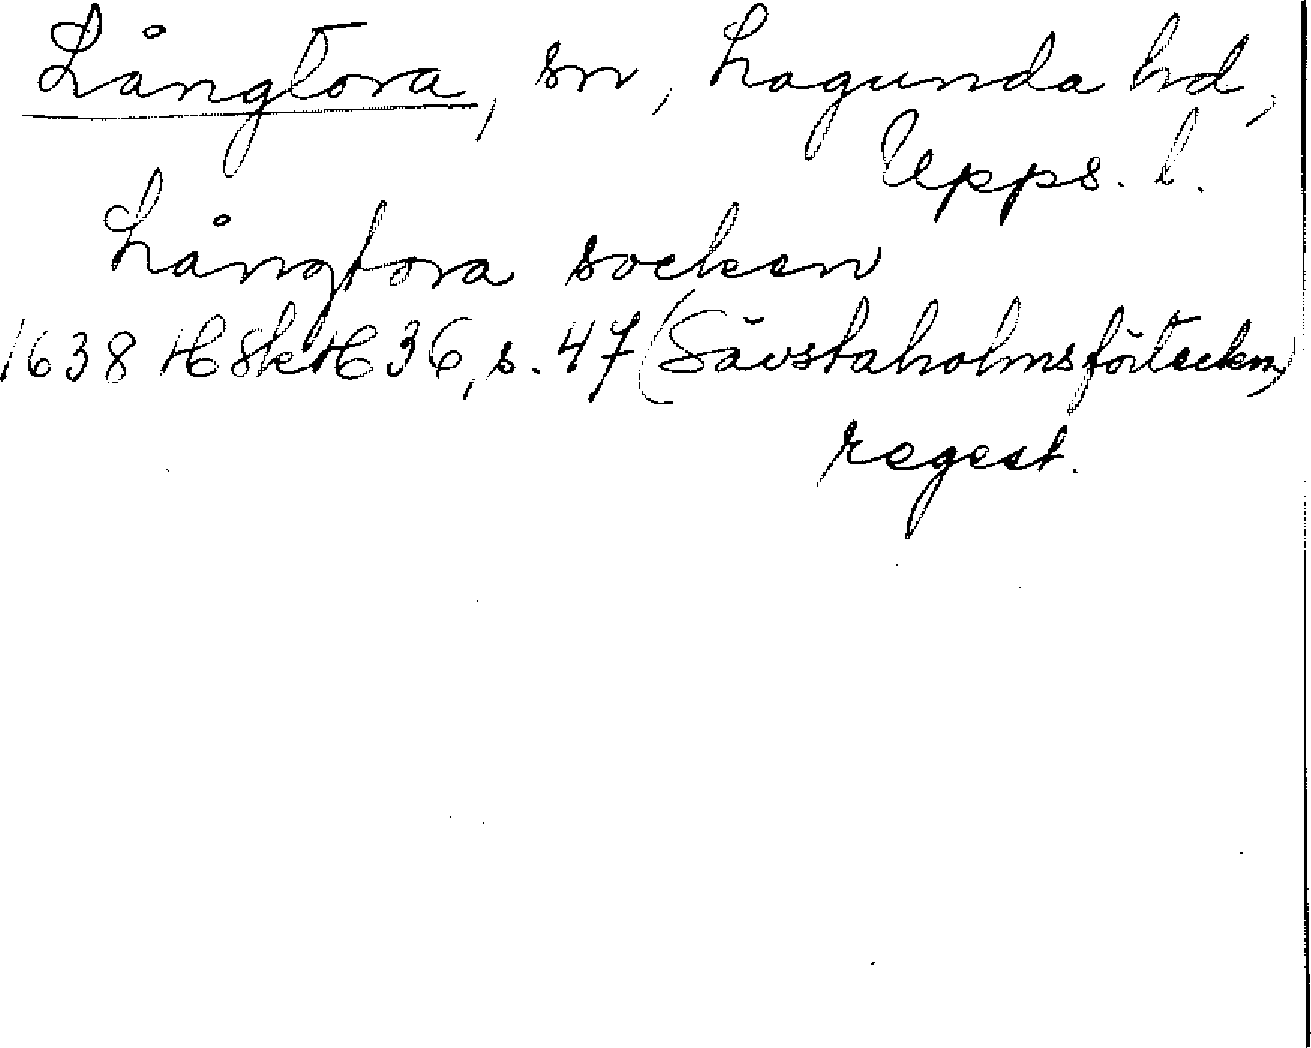 Långtora, sn, Lagunda hd,
Upps. l.
Långtora socken
1638 HSkH 36, s. 47 (Sävstaholmsförteckn)
regest.